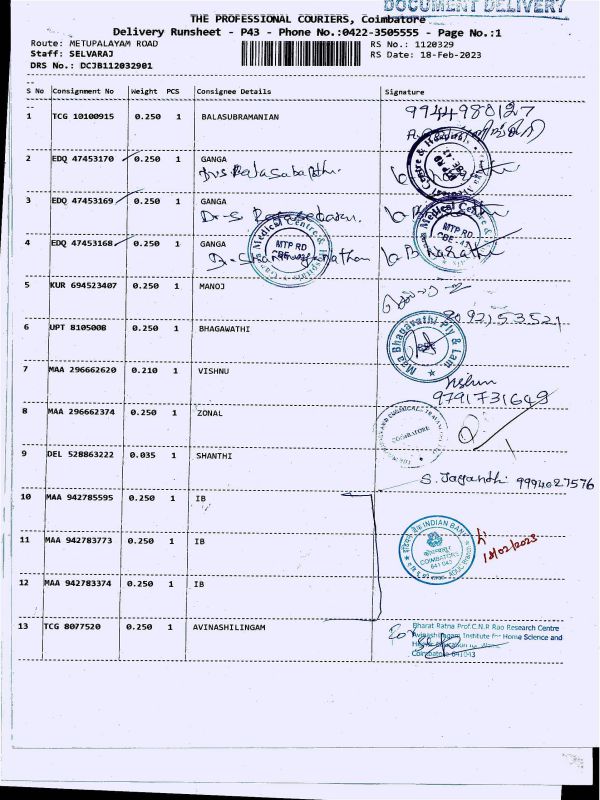 DOCUMENT DELIVERY
THE PROFESSIONAL COURIERS, Coimbatore
Delivery Runsheet - P43 - Phone No.:0422-3505555 - Page No.:1
Route: METUPALAYAM ROAD RS No.: 1120329
Staff: SELVARAJ RS Date: 18-Feb-2023
DRS No.: DCJB112032901
S No Consignment No Weight PCS Consignee Details Signature
1 TCG 10100915 0.250 1 BALASUBRAMANIAN 9944980127
2 EDQ 47453170 0.250 1 GANGA
3 EDQ 47453169 0.250 1 GANGA
4 EDQ 47453168 0.250 1 GANGA
Medical Centre &
MTP RD
5 KUR 694523407 0.250 1 MANOJ
6 UPT 8105008 0.250 1 BHAGAWATHI
Maa Bhagavathi Ply & Lam
7 MAA 296662620 0.210 1 VISHNU
9791731649
8 MAA 296662374 0.250 1 ZONAL
COIMBATORE
9 DEL 528863222 0.035 1 SHANTHI
S. Jayandhi 9994027576
10 MAA 942785595 0.250 1 IB
11 MAA 942783773 0.250 1 IB
INDIAN BANK
COIMBATORE
641 043
18/02/2023
12 MAA 942783374 0.250 1 IB
13 TCG 8077520 0.250 1 AVINASHILINGAM
For Bharat Ratna Prof.C.N.R Rao Research Centre
Avinashilingam Institute for Home Science and
Coimbatore 641043